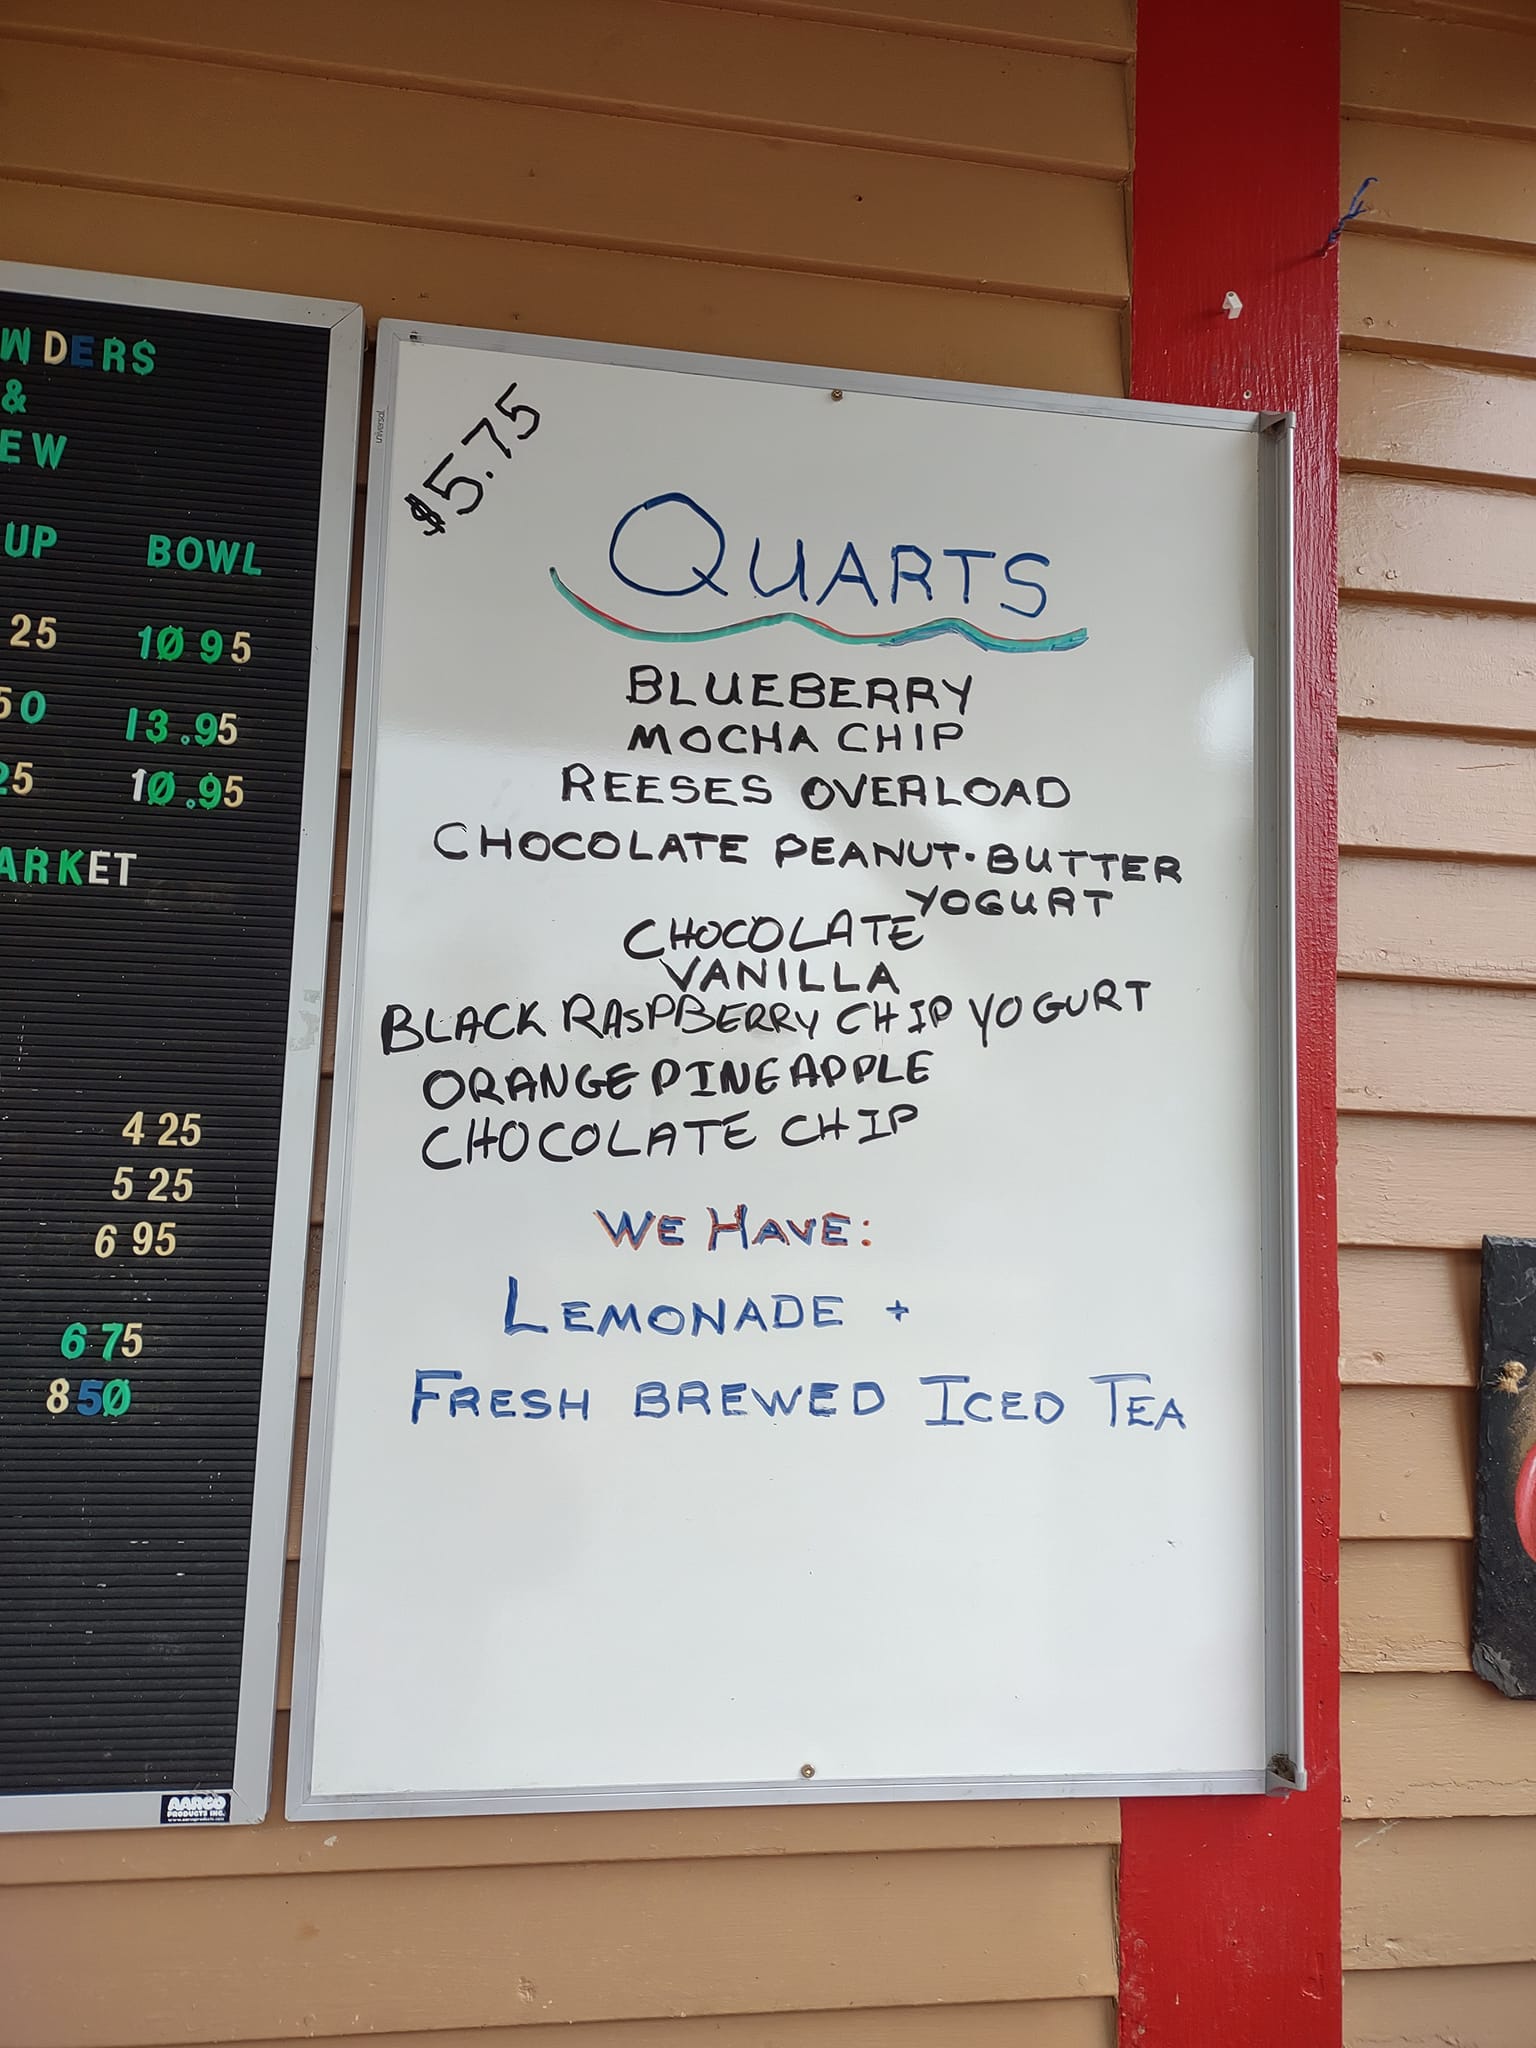 WDERS
&
EW
UP BOWL
25 10 95
50 13.95
25 10.95
ARKET
4 25
5 25
6 95
6 75
8 50
AARCO
PRODUCTS INC.
universal
$5.75
QUARTS
BLUEBERRY
MOCHA CHIP
REESES OVERLOAD
CHOCOLATE PEANUT-BUTTER
YOGURT
CHOCOLATE
VANILLA
BLACK RASPBERRY CHIP YOGURT
ORANGE PINEAPPLE
CHOCOLATE CHIP
WE HAVE:
LEMONADE +
FRESH BREWED ICED TEA